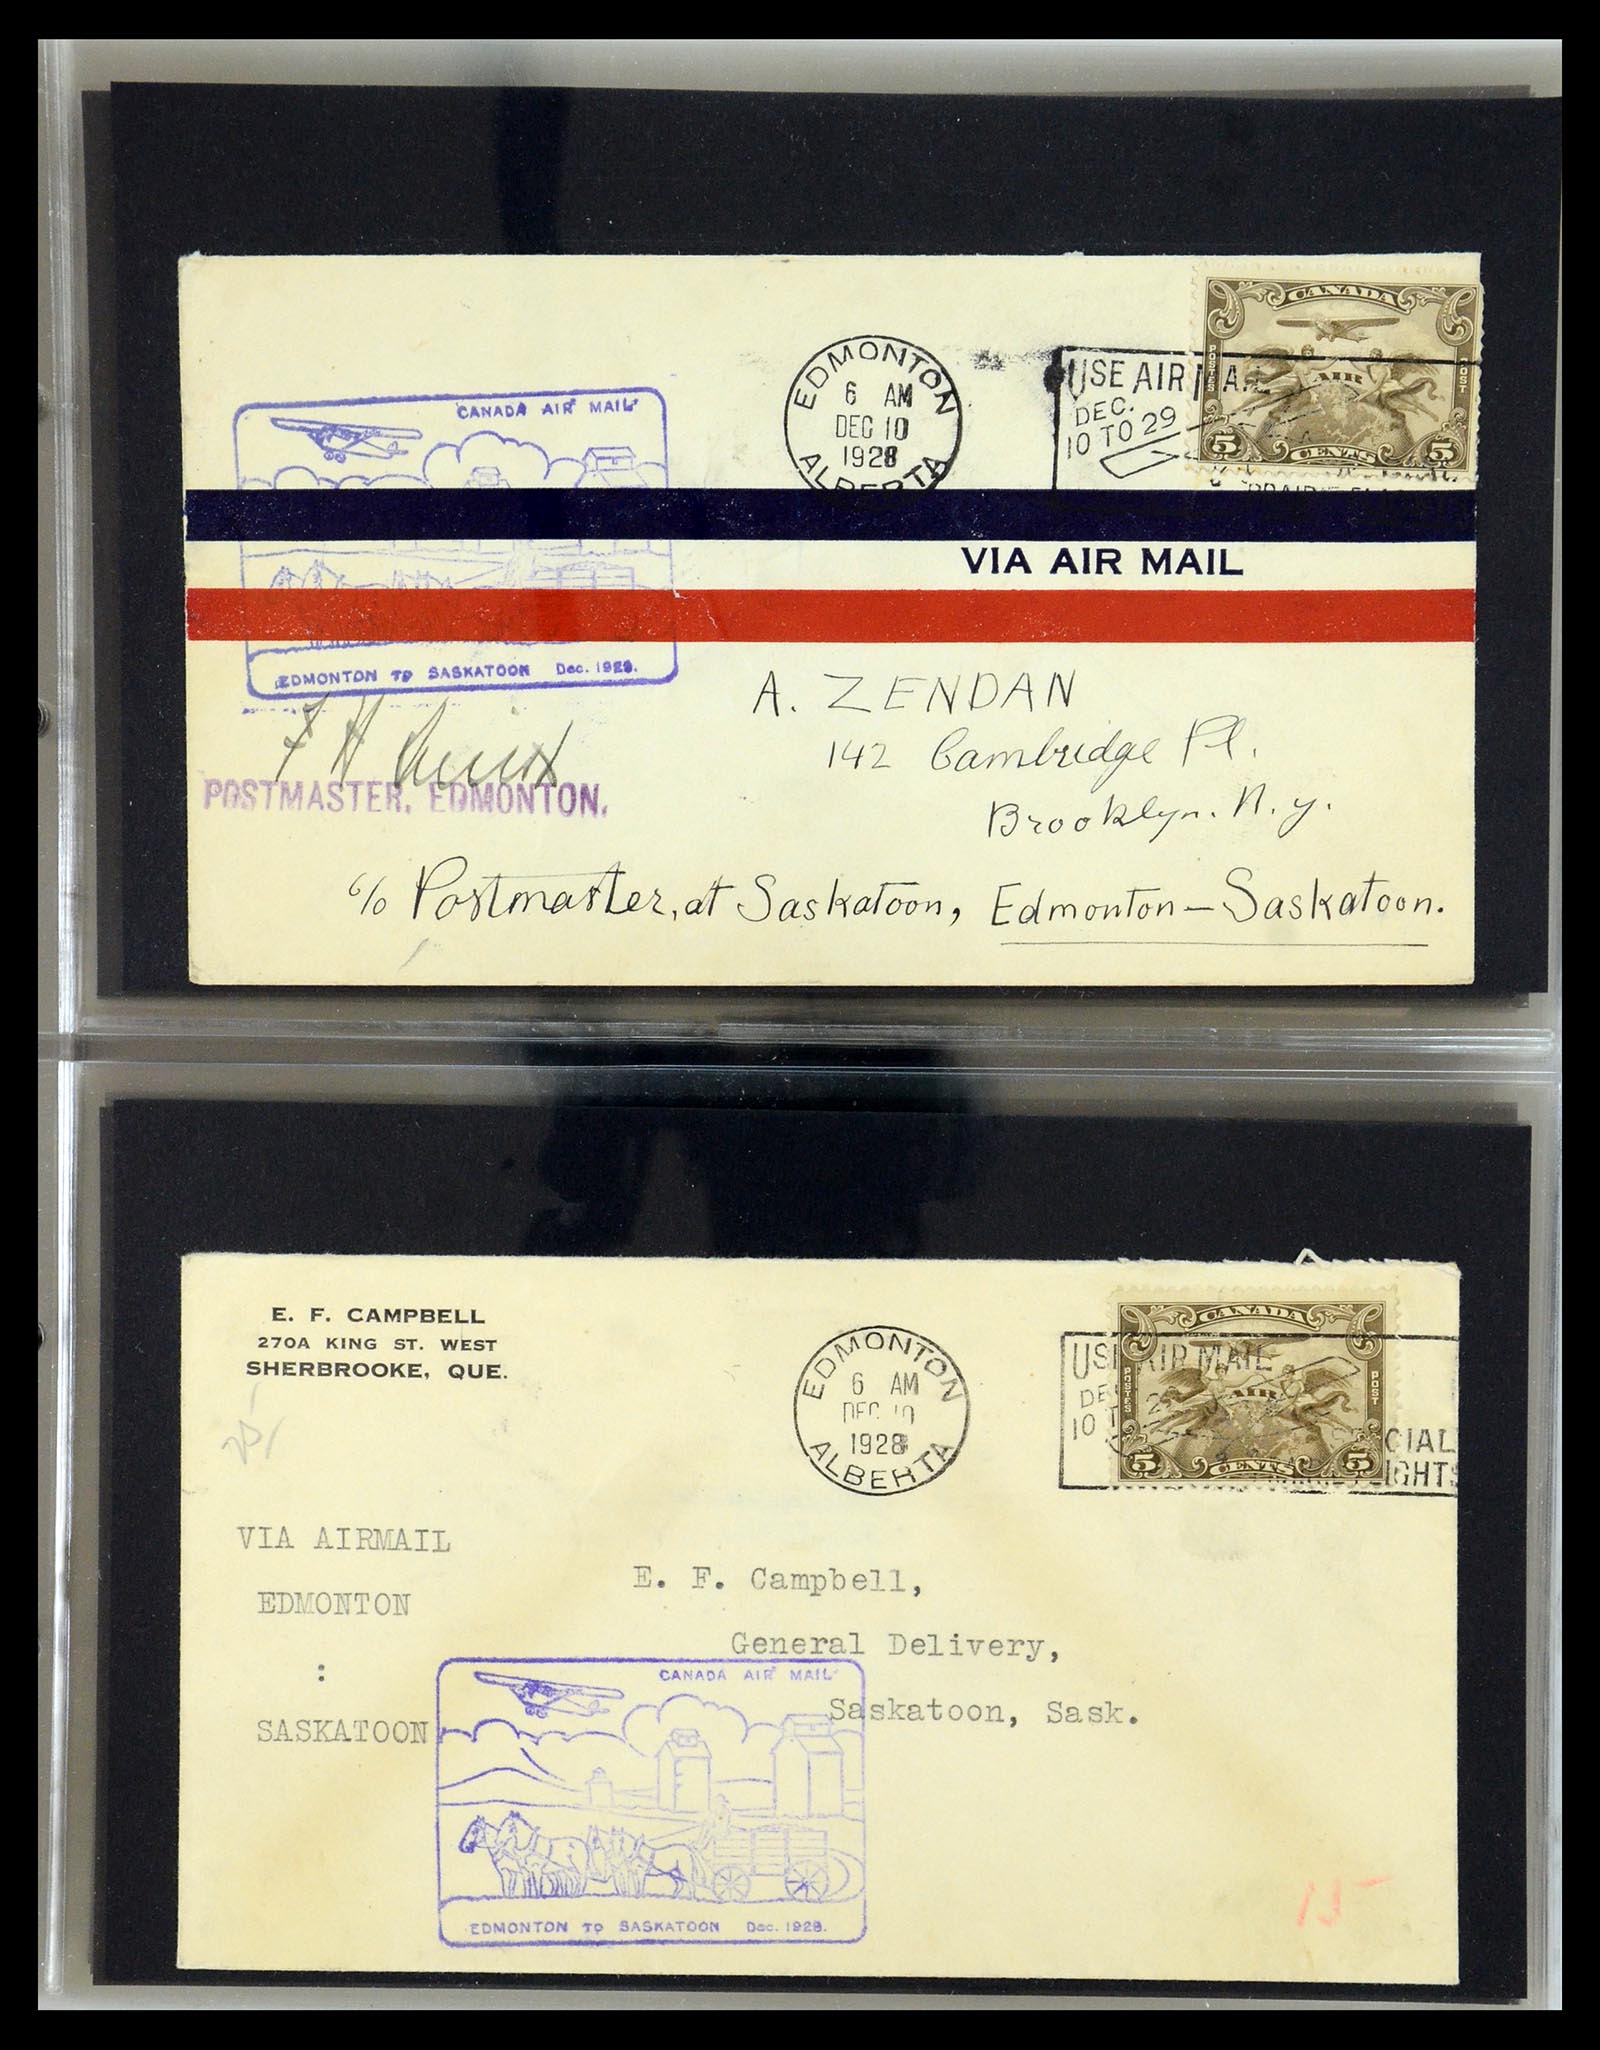 CANADA AIR MAIL
EDMONTON
6 AM
DEC 10
1928
ALBERTA
USE AIR MAIL
DEC.
10 TO 29
CANADA
POSTES
AIR
POST
5 CENTS 5
VIA AIR MAIL
EDMONTON TO SASKATOON Dec. 1928.
POSTMASTER, EDMONTON.
A. ZENDAN
142 Cambridge Pl.
Brooklyn. N.y.
c/o Postmaster, at Saskatoon, Edmonton-Saskatoon.
E. F. CAMPBELL
270A KING ST. WEST
SHERBROOKE, QUE.
EDMONTON
6 AM
DEC 10
1928
ALBERTA
USE AIR MAIL
DE
10 T
CIAL
IGHTS
CANADA
POSTES
AIR
POST
5 CENTS 5
VIA AIRMAIL
EDMONTON
:
SASKATOON
E. F. Campbell,
General Delivery,
Saskatoon, Sask.
CANADA AIR MAIL
EDMONTON TO SASKATOON Dec. 1928.
15